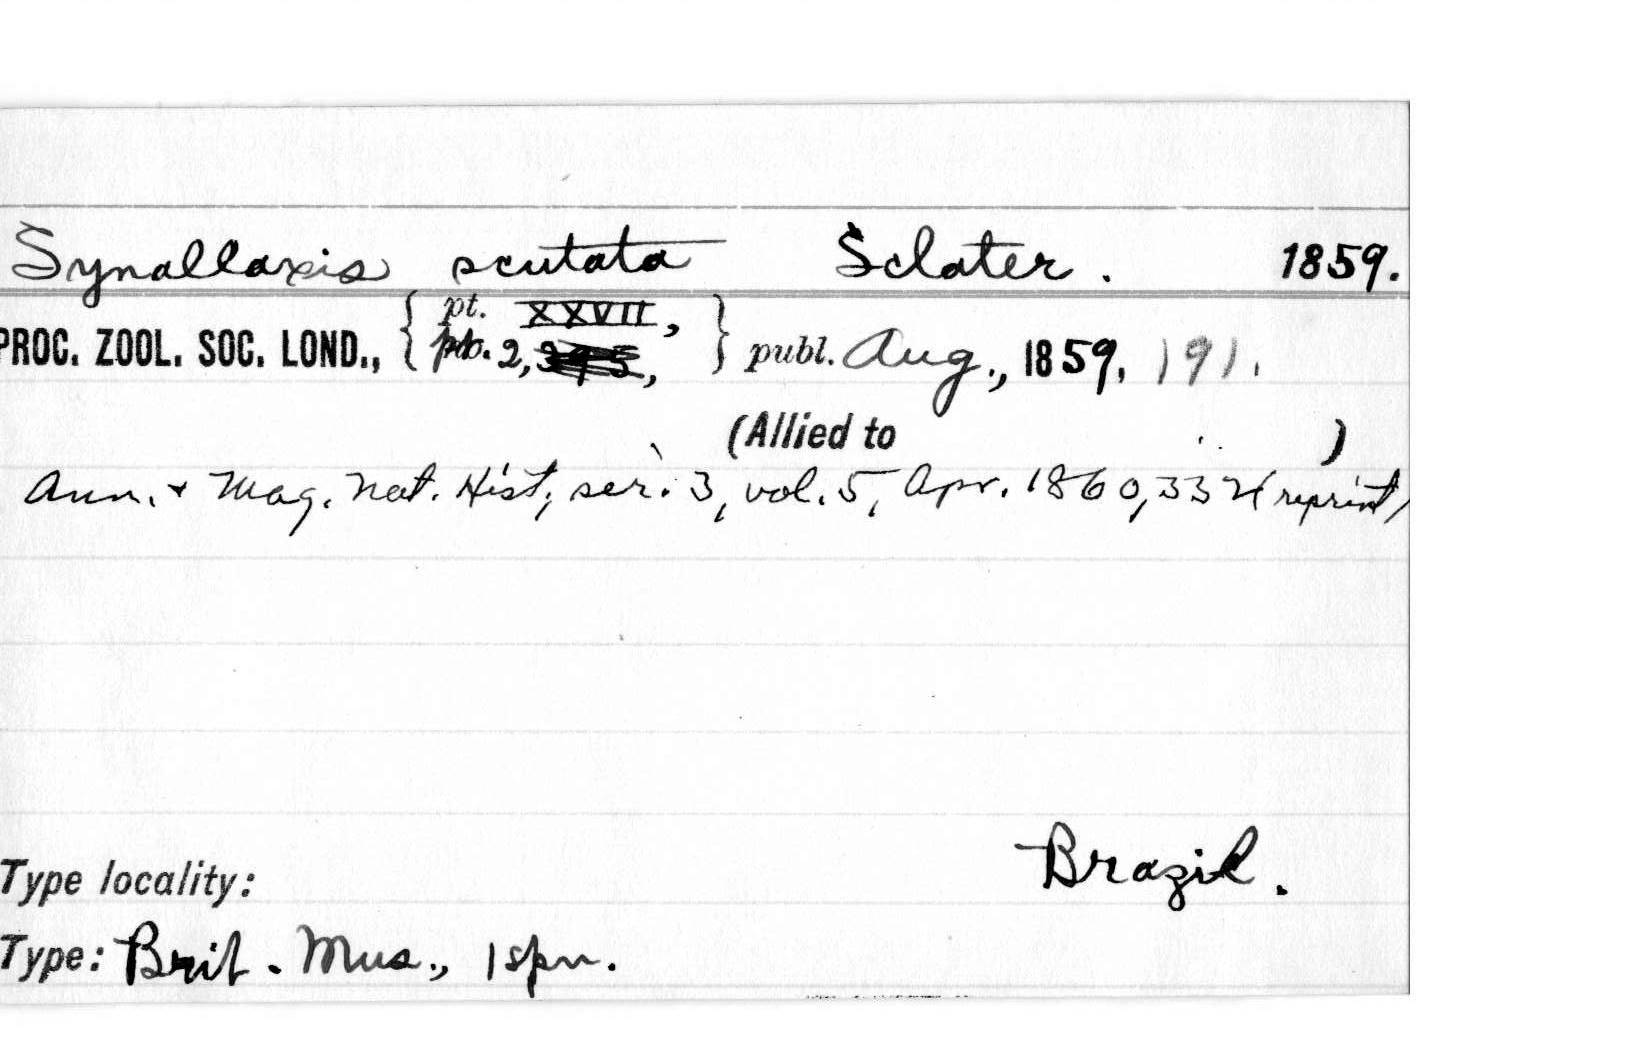 Synallaxis scutata Sclater. 1859.
PROC. ZOOL. SOC. LOND., { pt. XXVII, pt. 2, } publ. Aug., 1859, 191.
(Allied to )
Ann. + Mag. Nat. Hist., ser. 3, vol. 5, Apr. 1860, 332 (reprint)
Type locality: Brazil.
Type: Brit. Mus., 1 spn.